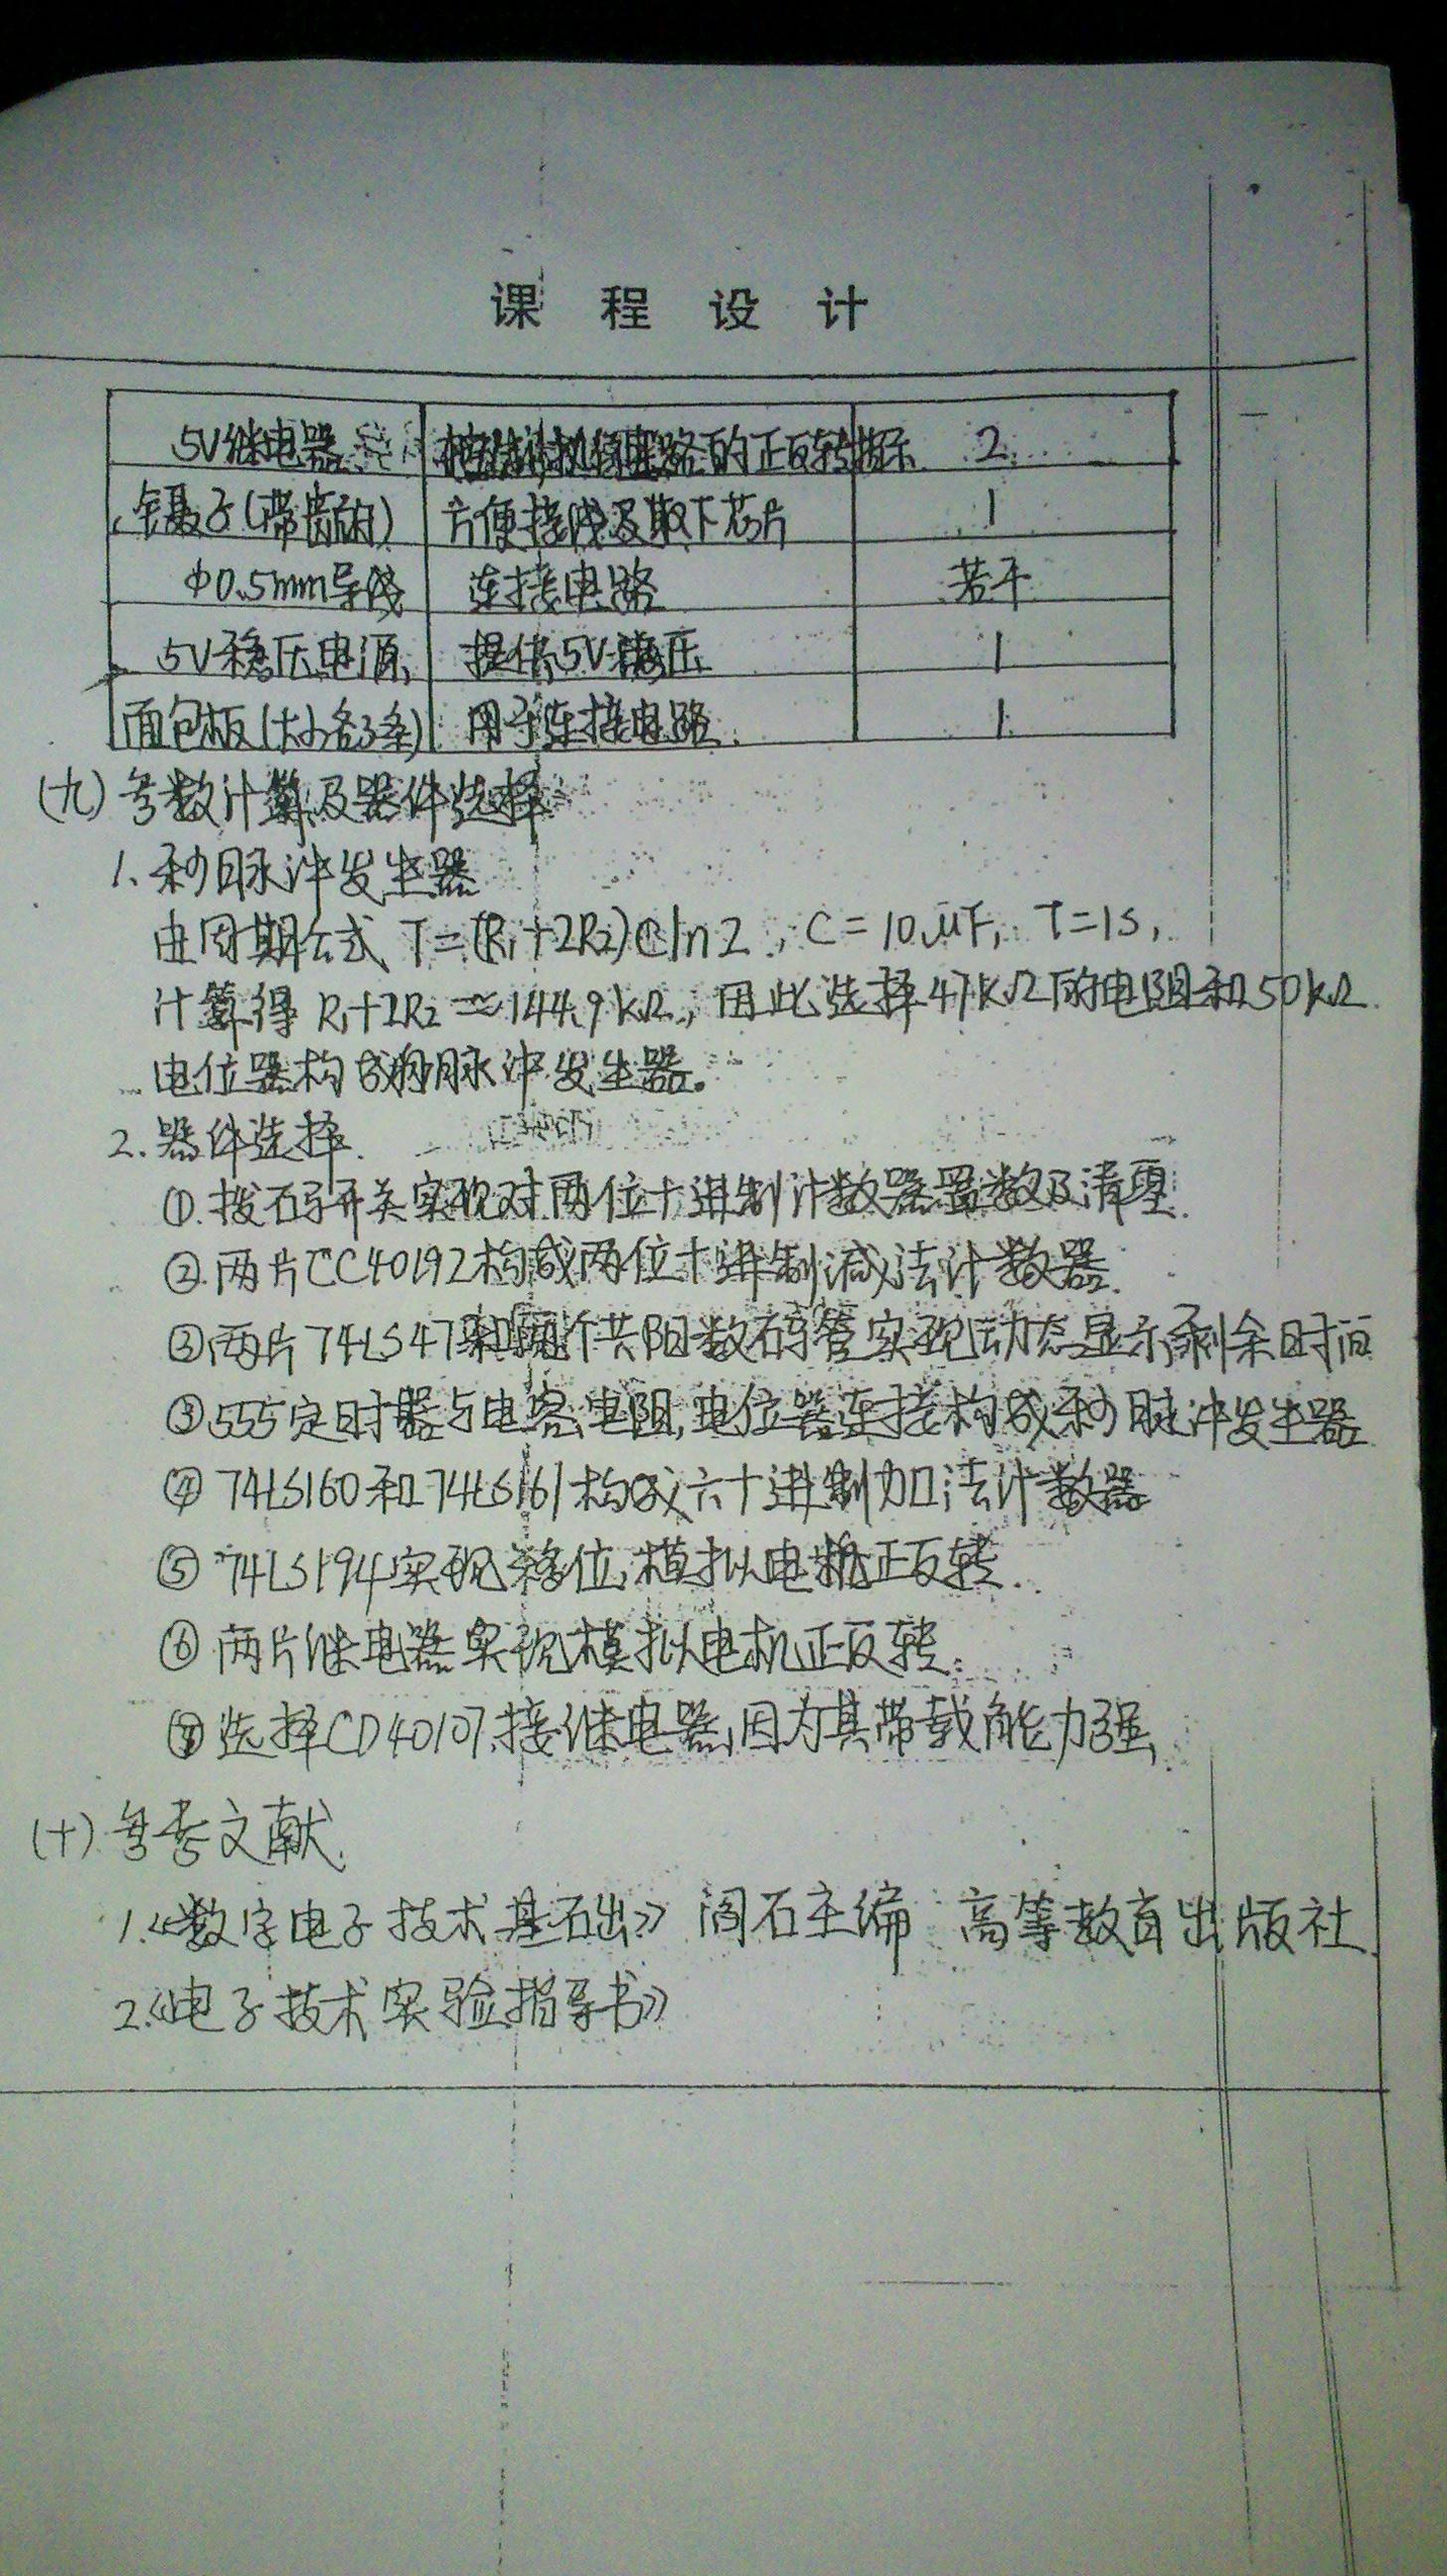 课 程 设 计
5V继电器 控制模拟电机的正反转 2
镊子(带防滑) 方便接线及取下芯片 1
φ0.5mm导线 连接电路 若干
5V稳压电源 提供5V稳压 1
面包板(或实验系统) 用于连接电路 1
(九)参数计算及器件选择
1.秒脉冲发生器
由周期公式 T=(R1+2R2)Cln2, C=10μF, T=1S,
计算得 R1+2R2≈144.9kΩ, 因此选择47kΩ的电阻和50kΩ
电位器构成秒脉冲发生器。
2.器件选择
①拨码开关实现对两位十进制计数器置数及清零
②两片CC40192构成两位十进制减法计数器
③两片74LS47和两个共阳数码管实现动态显示剩余时间
③555定时器与电容,电阻,电位器连接构成秒脉冲发生器
④74LS160和74LS161构成六十进制加法计数器
⑤74LS194实现移位,模拟电机正反转
⑥两片继电器实现模拟电机正反转
⑦选择CD4010门接继电器,因为其带载能力强
(十)参考文献
1.《数字电子技术基础》 阎石主编 高等教育出版社
2.《电子技术实验指导书》